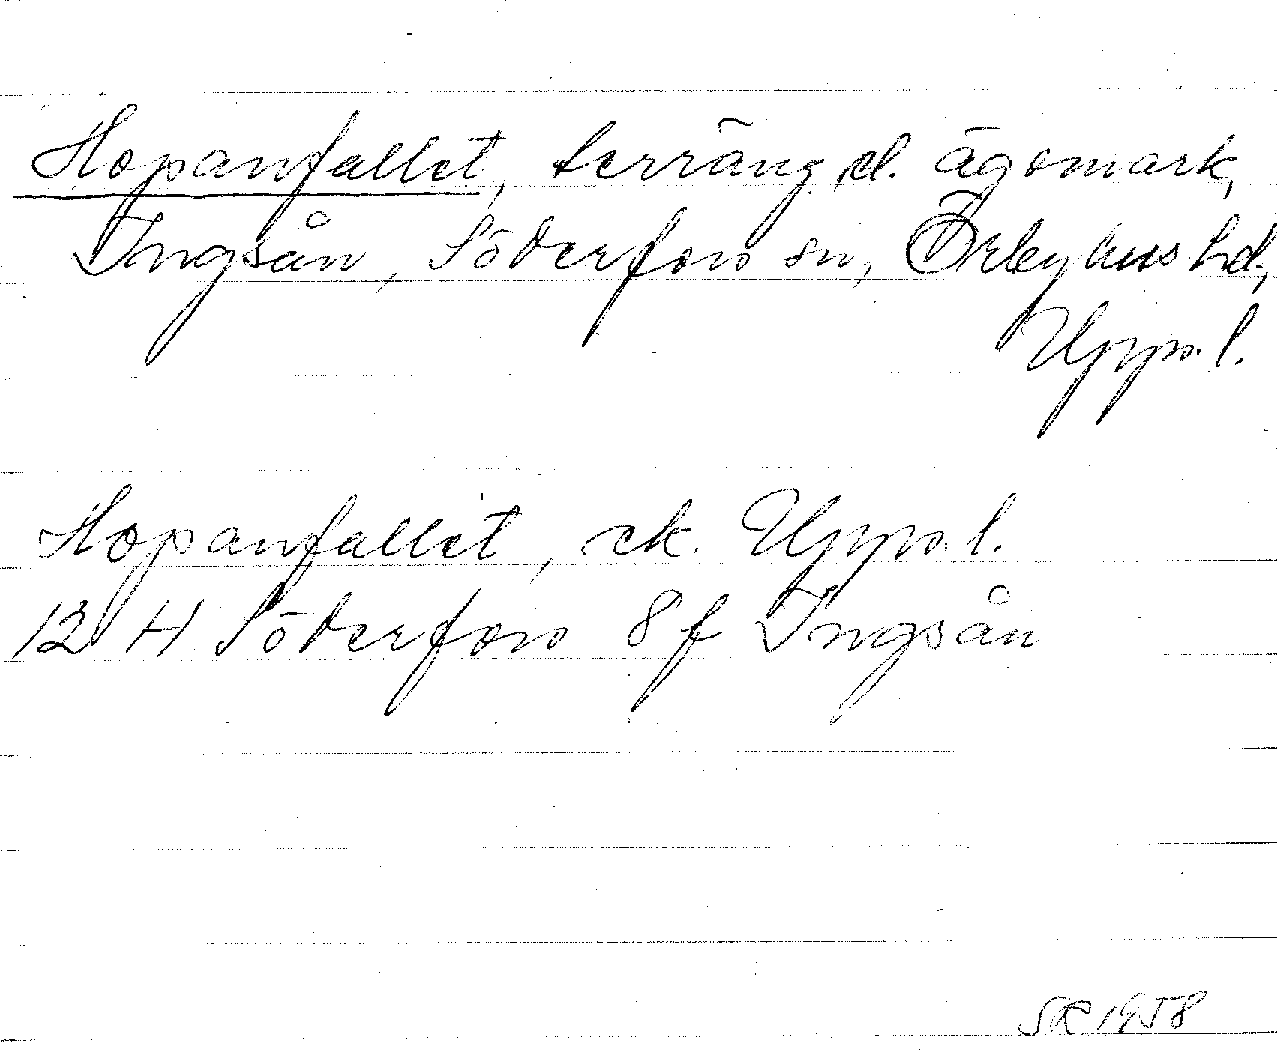 Hopanfallet, terräng el. ägomark,
Ingsån, Söderfors sn, Örbyhus hd,
Upps. l.
Hopanfallet, ek. Upps. l.
12 H Söderfors 8 f Ingsån
SR 1958